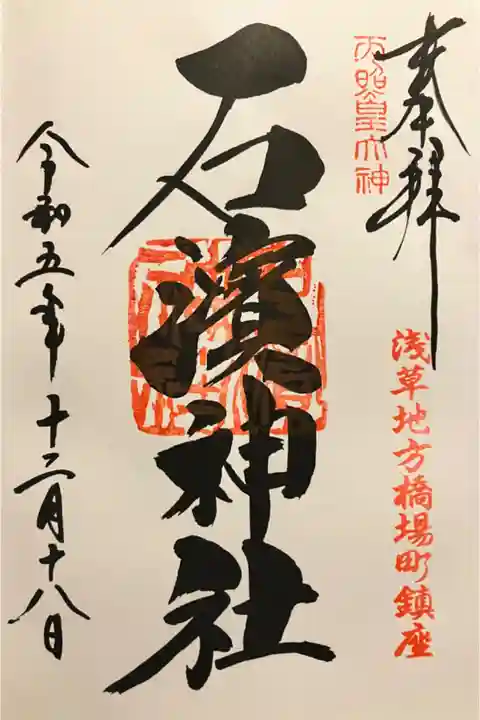 奉拝
天照皇大神
浅草地方橋場町鎮座
石濱神社
令和五年十二月十八日